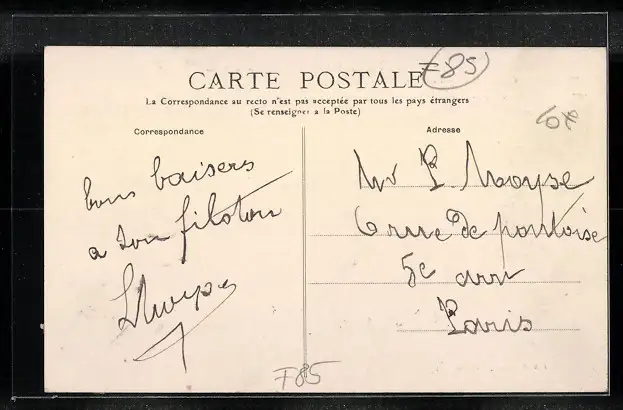 CARTE POSTALE
F85
La Correspondance au recto n'est pas acceptée par tous les pays étrangers
(Se renseigner a la Poste)
Correspondance
bons baisers
a ton filoton
LMoyse
Adresse
Mr P. Moyse
6 rue de pontoise
5e arr
Paris
F85